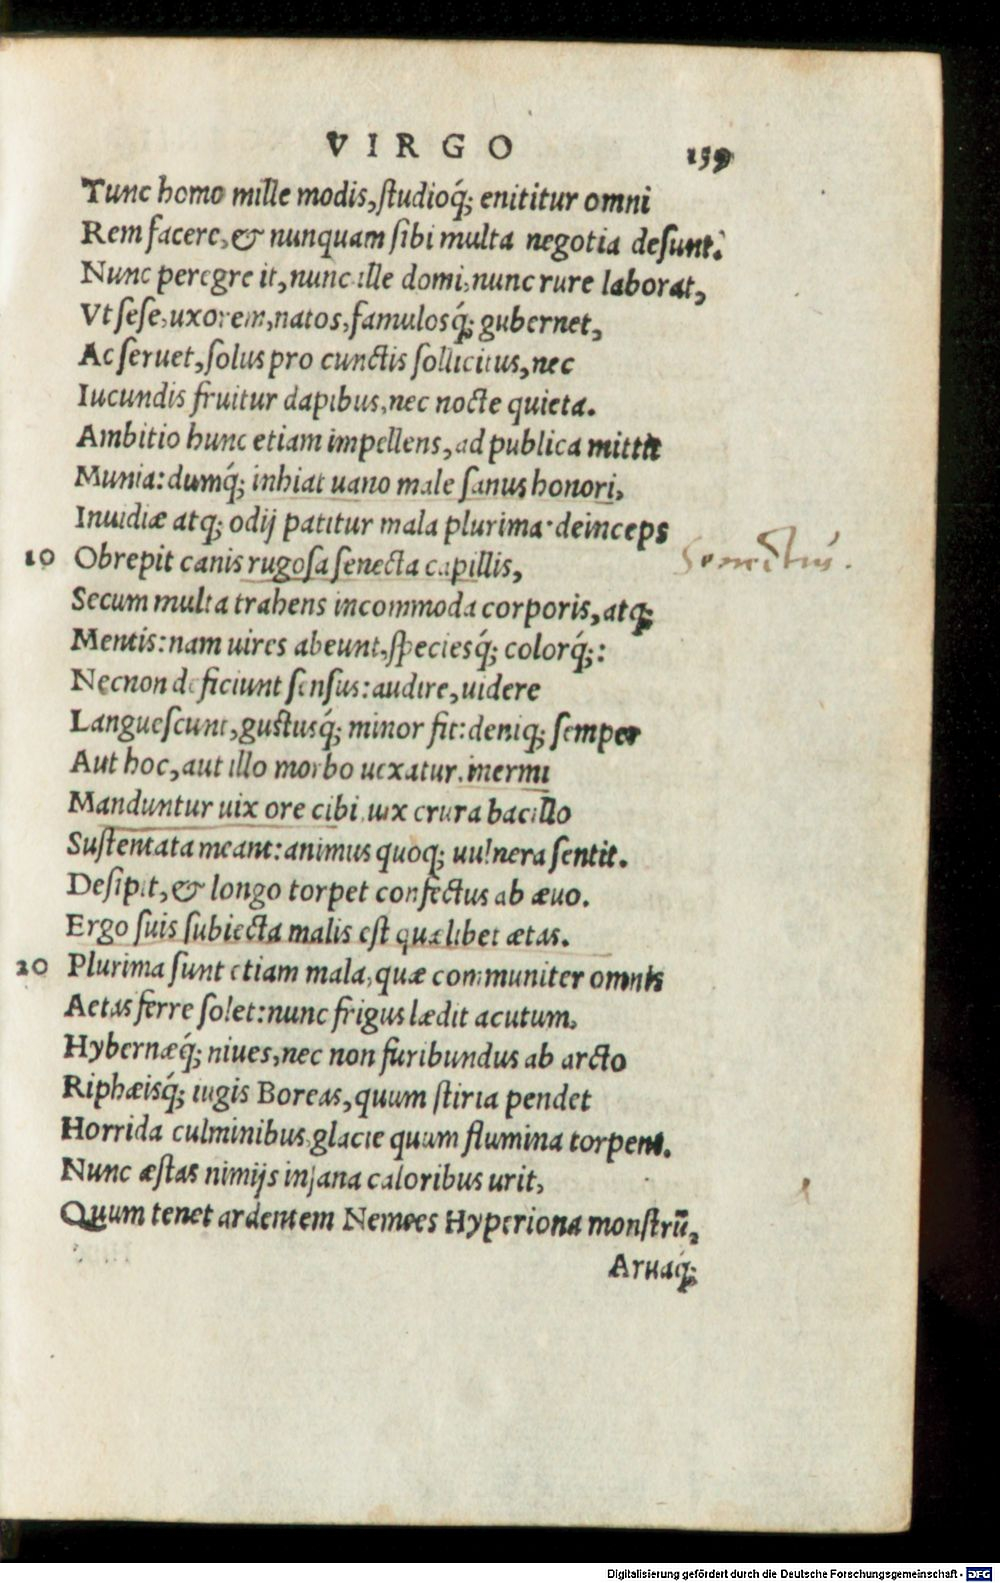 VIRGO 159
Tunc homo mille modis, ſtudioq́; enititur omni
Rem facere, & nunquam ſibi multa negotia deſunt.
Nunc peregre it, nunc ille domi, nunc rure laborat,
Vt ſeſe, uxorem, natos, famulosq́; gubernet,
Ac ſeruet, ſolus pro cunctis ſollicitus, nec
Iucundis fruitur dapibus, nec nocte quieta.
Ambitio hunc etiam impellens, ad publica mittit
Munia: dumq́; inhiat uano male ſanus honori,
Inuidiæ atq; odij patitur mala plurima· deinceps
10 Obrepit canis rugoſa ſenecta capillis, Senectus.
Secum multa trahens incommoda corporis, atq;
Mentis: nam uires abeunt, ſpeciesq́; colorq́;:
Necnon deficiunt ſenſus: audire, uidere
Langueſcunt, guſtusq́; minor fit: deniq; ſemper
Aut hoc, aut illo morbo uexatur, inermi
Manduntur uix ore cibi, uix crura bacillo
Suſtentata meant: animus quoq; uulnera ſentit.
Deſipit, & longo torpet confectus ab æuo.
Ergo ſuis ſubiecta malis eſt quælibet ætas.
20 Plurima ſunt etiam mala, quæ communiter omnis
Aetas ferre ſolet: nunc frigus lædit acutum,
Hybernæq́; niues, nec non furibundus ab arcto
Riphæisq́; iugis Boreas, quum ſtiria pendet
Horrida culminibus, glacie quum flumina torpent.
Nunc æſtas nimijs inſana caloribus urit,
Quum tenet ardentem Nemees Hyperiona monſtrū,
Aruaq́;
Digitalisierung gefördert durch die Deutsche Forschungsgemeinschaft - DFG